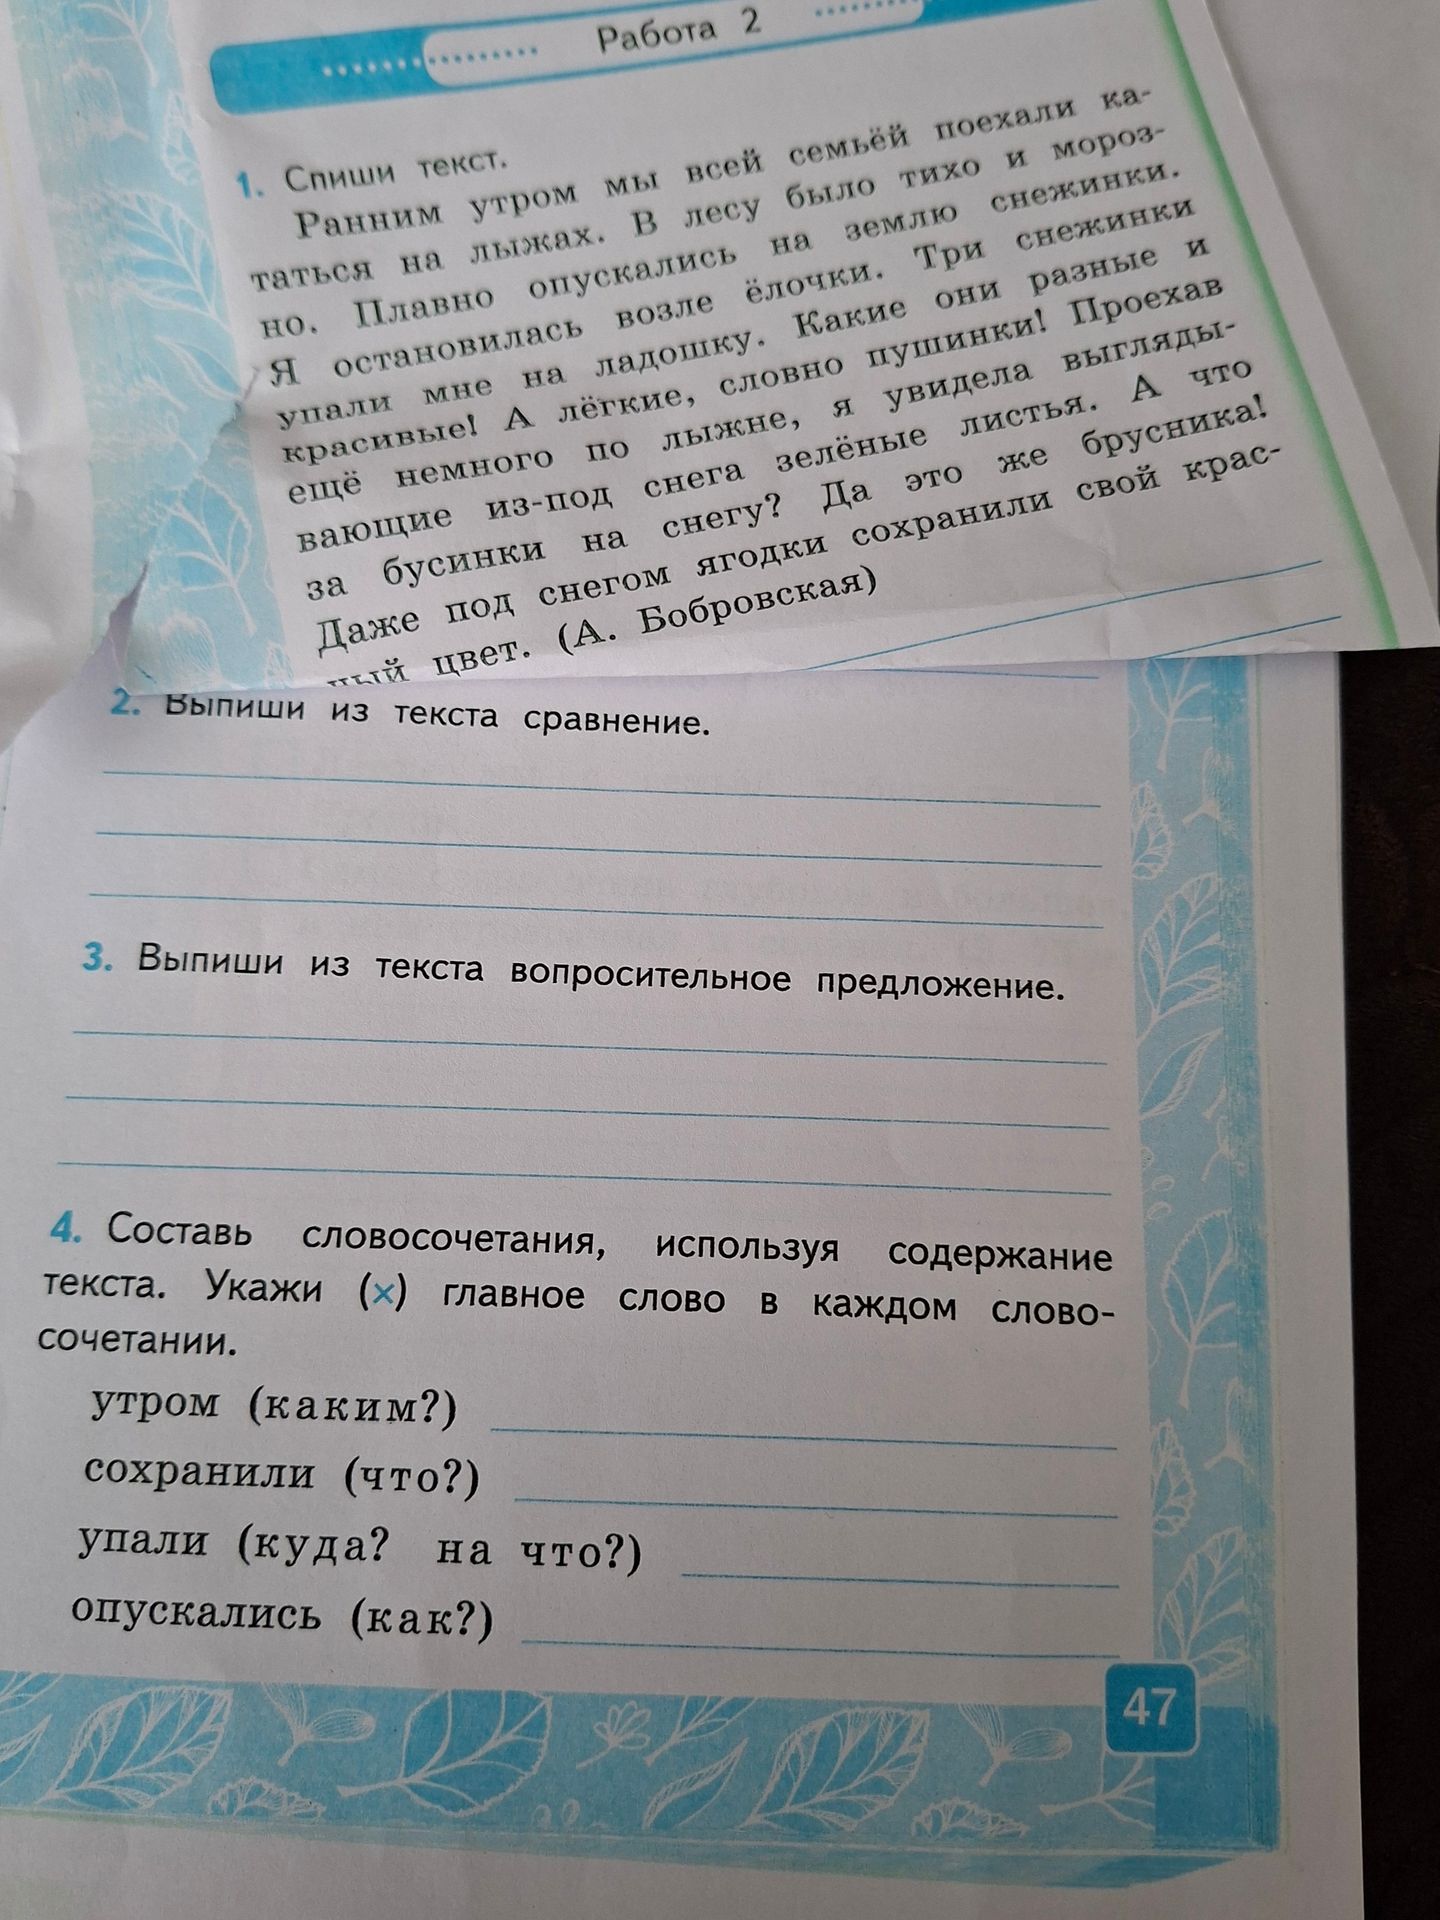 Работа 2
1. Спиши текст.
Ранним утром мы всей семьёй поехали ка-
таться на лыжах. В лесу было тихо и мороз-
но. Плавно опускались на землю снежинки.
Я остановилась возле ёлочки. Три снежинки
упали мне на ладошку. Какие они разные и
красивые! А лёгкие, словно пушинки! Проехав
ещё немного по лыжне, я увидела выгляды-
вающие из-под снега зелёные листья. А что
за бусинки на снегу? Да это же брусника!
Даже под снегом ягодки сохранили свой крас-
ный цвет. (А. Бобровская)
2. Выпиши из текста сравнение.
3. Выпиши из текста вопросительное предложение.
4. Составь словосочетания, используя содержание
текста. Укажи (×) главное слово в каждом слово-
сочетании.
утром (каким?)
сохранили (что?)
упали (куда? на что?)
опускались (как?)
47